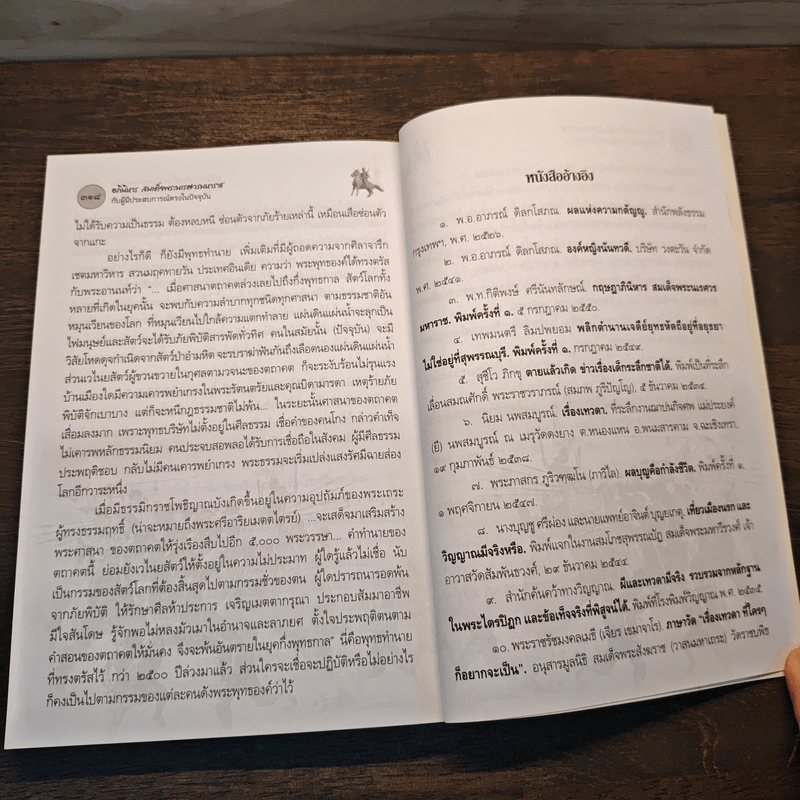 ๓๑๘
อภินิหาร สมเด็จพระนเรศวรมหาราช
กับผู้มีประสบการณ์ตรงในปัจจุบัน
ไม่ได้รับความเป็นธรรม ต้องหลบหนี ซ่อนตัวจากภัยร้ายเหล่านี้ เหมือนเสือซ่อนตัว
จากแกะ
อย่างไรก็ดี ก็ยังมีพุทธทำนาย เพิ่มเติมที่มีผู้ถอดความจากศิลาจารึก
เชตมหาวิหาร สวนมฤคทายวัน ประเทศอินเดีย ความว่า พระพุทธองค์ได้ทรงตรัส
กับพระอานนท์ว่า “... เมื่อศาสนาตถาคตล่วงเลยไปถึงกึ่งพุทธกาล สัตว์โลกทั้ง
หลายที่เกิดในยุคนั้น จะพบกับความลำบากทุกชนิดทุกศาสนา ตามธรรมชาติอัน
หมุนเวียนของโลก ที่หมุนเวียนไปใกล้ความแตกทำลาย แผ่นดินแผ่นน้ำจะลุกเป็น
ไฟมนุษย์และสัตว์จะได้รับภัยพิบัติสารพัดทั่วทิศ คนในสมัยนั้น (ปัจจุบัน) จะมี
วิสัยโหดดุจกำเนิดจากสัตว์ป่าอำมหิต จะรบราฆ่าฟันกันถึงเลือดนองแผ่นดินแผ่นน้ำ
ส่วนเวไนยสัตว์ผู้ขวนขวายในกุศลตามวจนะของตถาคต ก็จะระงับร้อนไม่รุนแรง
บ้านเมืองใดมีความเคารพยำเกรงในพระรัตนตรัยและคุณบิดามารดา เหตุร้ายภัย
พิบัติจักเบาบาง แต่ก็จะหนีกฎธรรมชาติไม่พ้น... ในระยะนั้นศาสนาของตถาคต
เสื่อมลงมาก เพราะพุทธบริษัทไม่ตั้งอยู่ในศีลธรรม เชื่อคำของคนโกง กล่าวคำเท็จ
ไม่เคารพหลักธรรมนิยม คนประจบสอพลอได้รับการเชื่อถือในสังคม ผู้มีศีลธรรม
ประพฤติชอบ กลับไม่มีคนเคารพยำเกรง พระธรรมจะเริ่มเปล่งแสงรัศมีฉายส่อง
โลกอีกวาระหนึ่ง
เมื่อมีธรรมิกราชโพธิญาณบังเกิดขึ้นอยู่ในความอุปถัมภ์ของพระเถระ
ผู้ทรงธรรมฤทธิ์ (น่าจะหมายถึงพระศรีอาริยเมตตไตรย์) ...จะเสด็จมาเสริมสร้าง
พระศาสนา ของตถาคตให้รุ่งเรืองสืบไปอีก ๕,๐๐๐ พระวรรษา... คำทำนายของ
ตถาคตนี้ ย่อมยังเวไนยสัตว์ให้ตั้งอยู่ในความไม่ประมาท ผู้ใดรู้แล้วไม่เชื่อ นับ
เป็นกรรมของสัตว์โลกที่ต้องสิ้นสุดไปตามกรรมชั่วของตน ผู้ใดปรารถนารอดพ้น
จากภัยพิบัติ ให้รักษาศีลห้าประการ เจริญเมตตากรุณา ประกอบสัมมาอาชีพ
มีใจสันโดษ รู้จักพอไม่หลงมัวเมาในอำนาจและลาภยศ ตั้งใจประพฤติตนตาม
คำสอนของตถาคตให้มั่นคง จึงจะพ้นอันตรายในยุคกึ่งพุทธกาล” นี่คือพุทธทำนาย
ที่ทรงตรัสไว้ กว่า ๒๕๐๐ ปีล่วงมาแล้ว ส่วนใครจะเชื่อจะปฏิบัติหรือไม่อย่างไร
ก็คงเป็นไปตามกรรมของแต่ละคนดังพระพุทธองค์ว่าไว้
หนังสืออ้างอิง
๑. พ.อ.อาภรณ์ ดิลกโสภณ. ผลแห่งความกตัญญู. สำนักพลังธรรม
กรุงเทพฯ, พ.ศ. ๒๕๒๖.
๒. พ.อ.อาภรณ์ ดิลกโสภณ. องค์หญิงนันทวดี. บริษัท วงตะวัน จำกัด
พ.ศ. ๒๕๔๑.
๓. พ.ท.กิติพงษ์ ศรีนันทลักษณ์. กฤษฎาภินิหาร สมเด็จพระนเรศวร
มหาราช. พิมพ์ครั้งที่ ๑. ๕ กรกฎาคม ๒๕๕๐.
๔. เทพมนตรี ลิมปพยอม พลิกตำนานเจดีย์ยุทธหัตถีอยู่ที่อยุธยา
ไม่ใช่อยู่ที่สุพรรณบุรี. พิมพ์ครั้งที่ ๑. กรกฎาคม ๒๕๔๙.
๕. สุชีโว ภิกขุ ตายแล้วเกิด ข่าวเรื่องเด็กระลึกชาติได้. พิมพ์เป็นที่ระลึก
เลื่อนสมณศักดิ์ พระราชวราภรณ์ (สมภพ ภูริปัญโญ), ๕ ธันวาคม ๒๕๓๔.
๖. นิยม นพสมบูรณ์. เรื่องเทวดา. ที่ระลึกงานฌาปนกิจศพ แม่ประยงค์
(ยี) นพสมบูรณ์ ณ เมรุวัดดงยาง ต.หนองแหน อ.พนมสารคาม จ.ฉะเชิงเทรา,
๑๙ กุมภาพันธ์ ๒๕๓๘.
๗. พระภาสกร ภูริวฑฺฒโน (ภาวิไล). ผลบุญคือกำลังชีวิต. พิมพ์ครั้งที่ ๑,
๑ พฤศจิกายน ๒๕๔๗.
๘. นางบุญชู ศรีผ่อง และนายแพทย์อาจินต์ บุญยเกตุ. เที่ยวเมืองนรก และ
วิญญาณมีจริงหรือ. พิมพ์แจกในงานสมโภชสุพรรณบัฏ สมเด็จพระมหาวีรวงศ์ เจ้า
อาวาสวัดสัมพันธวงศ์, ๒๙ ธันวาคม ๒๕๔๔.
๙. สำนักค้นคว้าทางวิญญาณ. ผีและเทวดามีจริง รวบรวมจากหลักฐาน
ในพระไตรปิฎก และข้อเท็จจริงที่พิสูจน์ได้. พิมพ์ที่โรงพิมพ์วิญญาณ พ.ศ. ๒๕๓๕
๑๐. พระราชรัชมงคลเมธี (เจียร เขมาจาโร). ภาษาวัด “เรื่องเทวดา ที่ใครๆ
ก็อยากจะเป็น”. อนุสารมูลนิธิ สมเด็จพระสังฆราช (วาสนมหาเถระ) วัดราชบพิธ